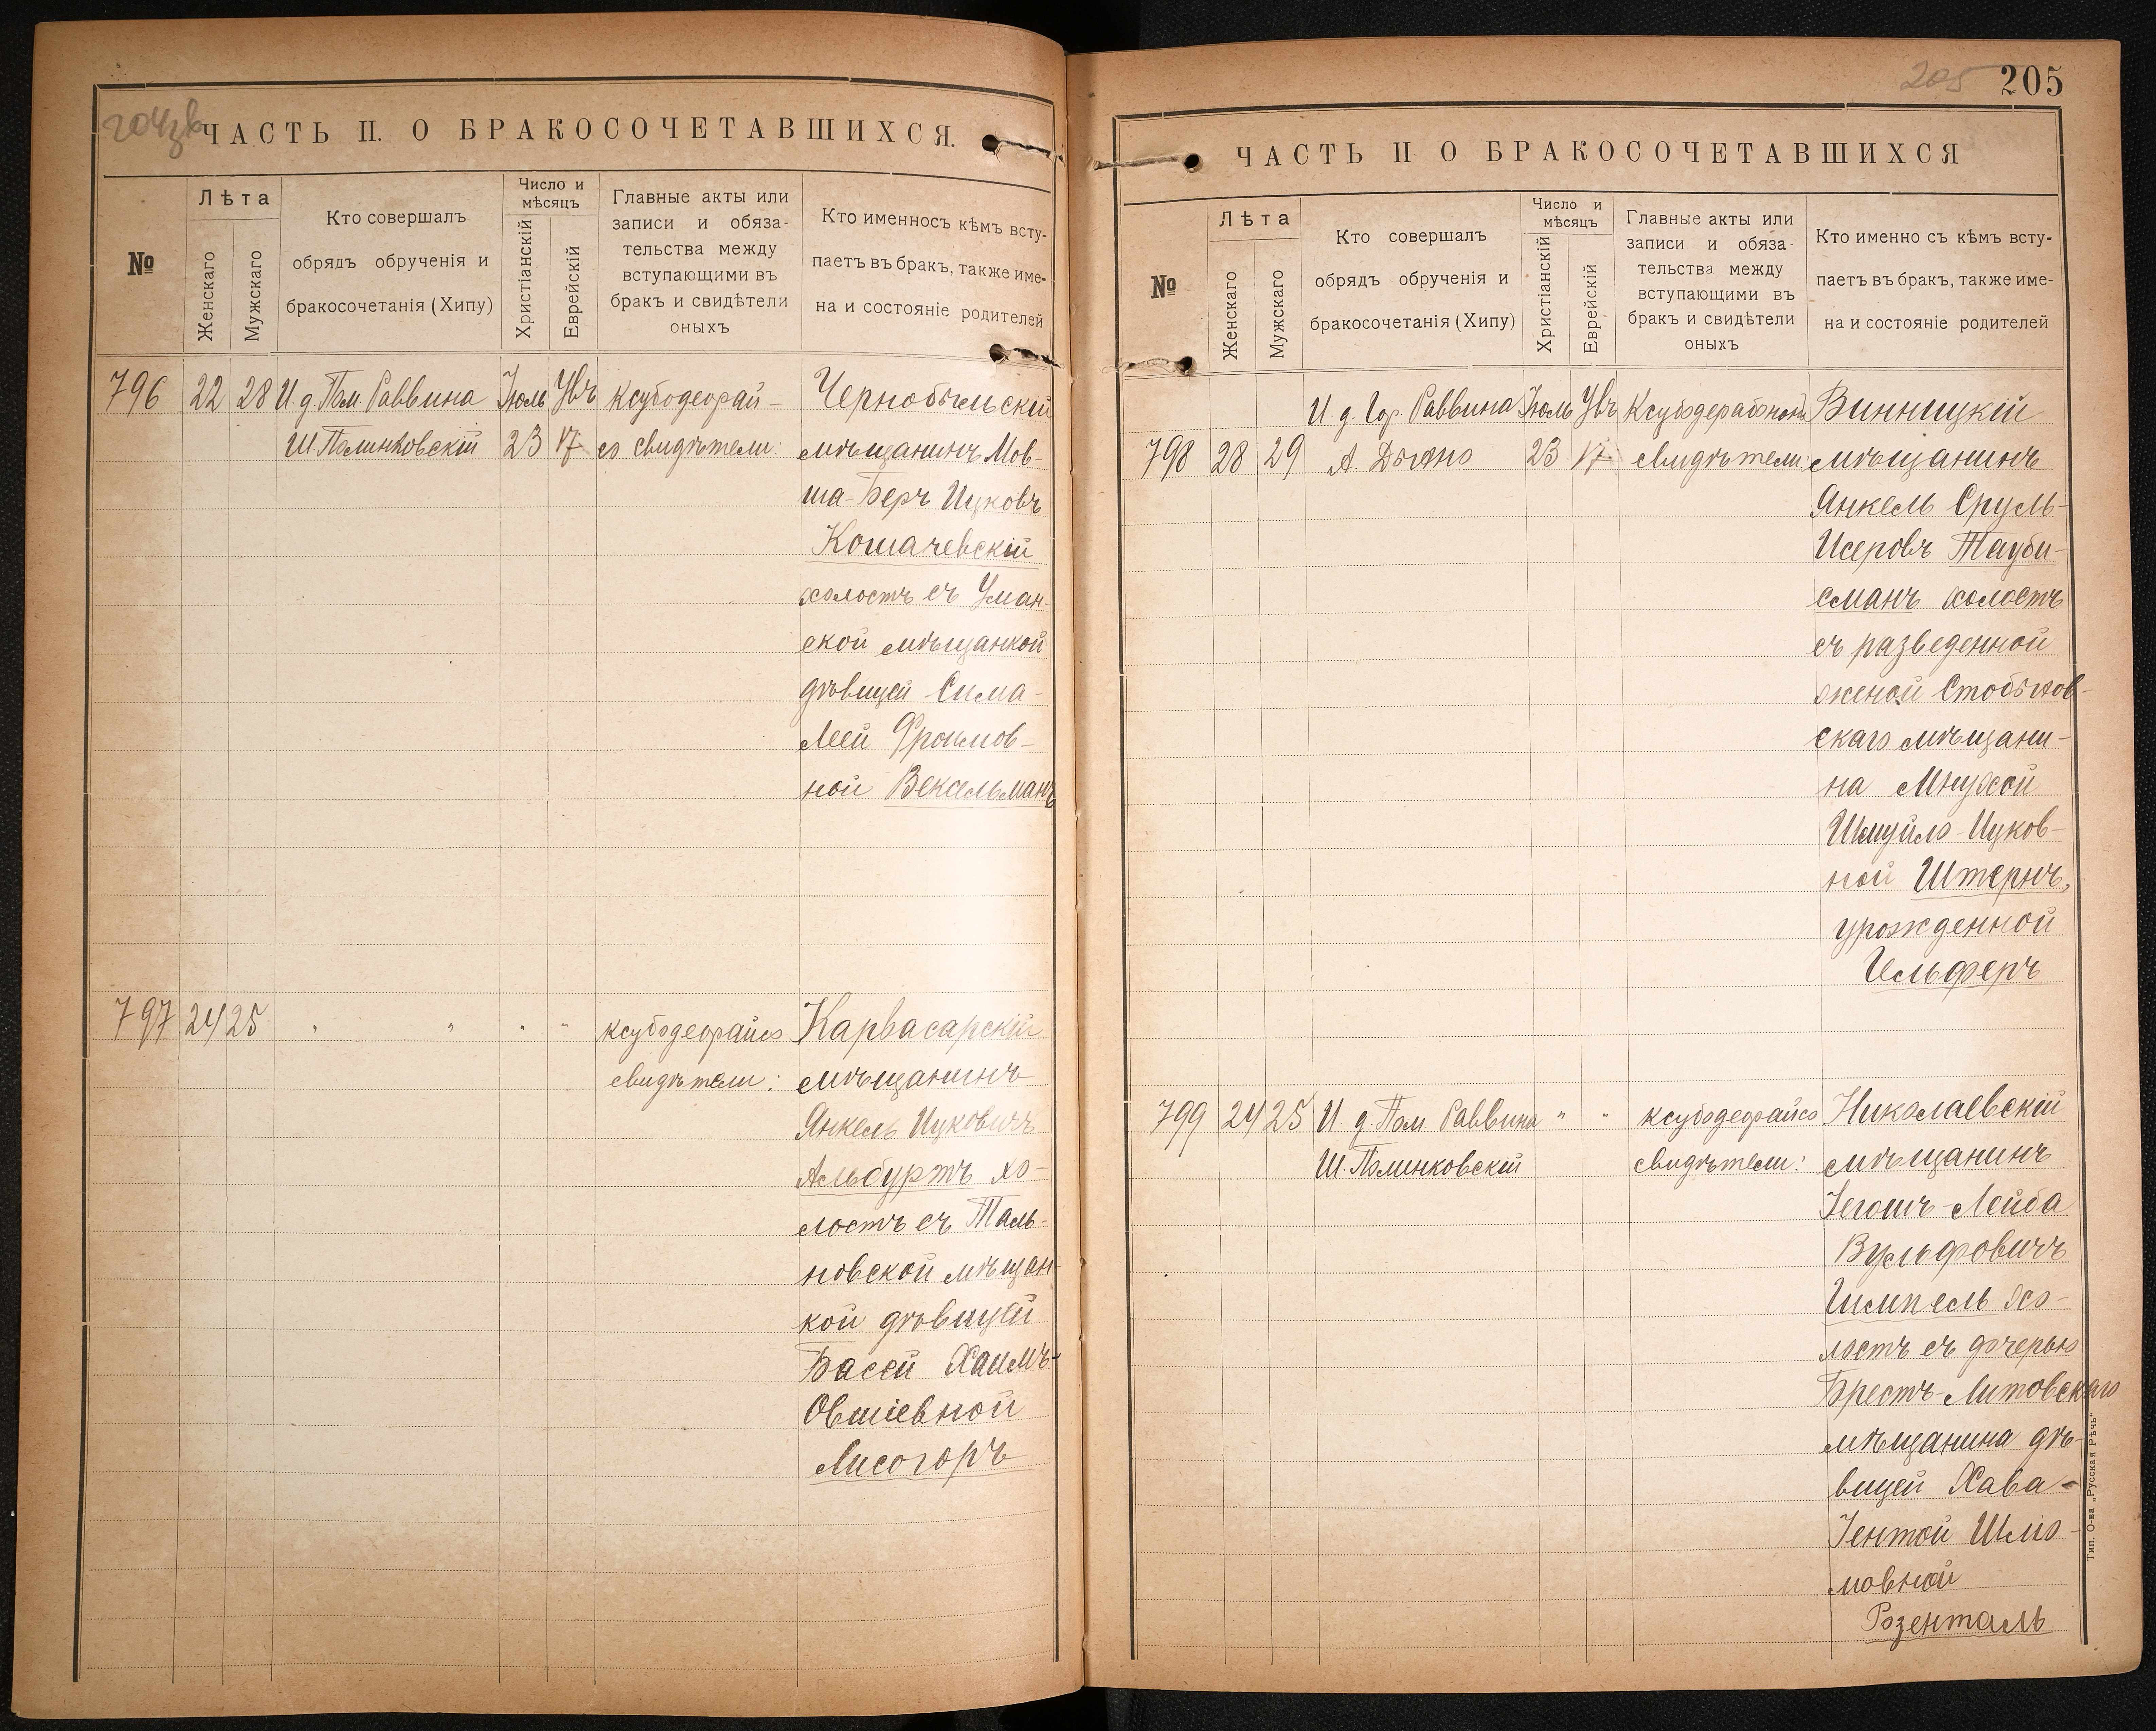 204 зв
ЧАСТЬ II. О БРАКОСОЧЕТАВШИХСЯ.
№
Лѣта
Женскаго
Мужскаго
Кто совершалъ
обрядъ обрученія и
бракосочетанія (Хипу)
Число и
мѣсяцъ
Христіанскій
Еврейскій
Главные акты или
записи и обяза-
тельства между
вступающими въ
бракъ и свидѣтели
оныхъ
Кто именносъ кѣмъ всту-
паетъ въ бракъ, также име-
на и состояніе родителей
796 22 28 И. д. Пом Раввина Іюль Увъ Ксубодеорай- Чернобыльскій
Ш. Полинковскій 23 17 со свидѣтели: мѣщанинъ Мов-
ша-Беръ Ицковъ
Кошачевскій
холостъ съ Уман-
ской мѣщанкой
дѣвицей Сима-
Леей Фроимов-
ной Вексельманъ
797 24 25 " " " " ксубодеорайсо Карвасарскій
свидѣтели: мѣщанинъ
Янкель Ицковичъ
Альбуртъ хо-
лостъ съ Таль-
новской мѣщан-
кой дѣвицей
Басей Хаимъ-
Овшіевной
Лисогоръ
205
205
ЧАСТЬ II О БРАКОСОЧЕТАВШИХСЯ
№
Лѣта
Женскаго
Мужскаго
Кто совершалъ
обрядъ обрученія и
бракосочетанія (Хипу)
Число и
мѣсяцъ
Христіанскій
Еврейскій
Главные акты или
записи и обяза-
тельства между
вступающими въ
бракъ и свидѣтели
оныхъ
Кто именно съ кѣмъ всту-
паетъ въ бракъ, также име-
на и состояніе родителей
И. д. Гор. Раввина Іюль Увъ Винницкій
798 28 29 А. 23 17 свидѣтели: мѣщанинъ
Янкель Сруль-
Исеровъ Тауби-
сманъ холостъ
съ разведенной
женой Стобыхов-
скаго мѣщани-
на Мнухой
Шмуйло-Ицков-
ной Штернъ,
урожденной
Гельферъ
799 24 25 И. д. Пом. Раввина " " ксубодеорайсо Николаевскій
Ш. Полинковскій свидѣтели: мѣщанинъ
Іегошъ-Лейба
Вульфовичъ
Гимпель хо-
лостъ съ дочерью
Брестъ-Литовскаго
мѣщанина дѣ-
вицей Хава-
Іентой Шліо-
мовной
Розенталь
Тип. О-ва „Русская Рѣчь“